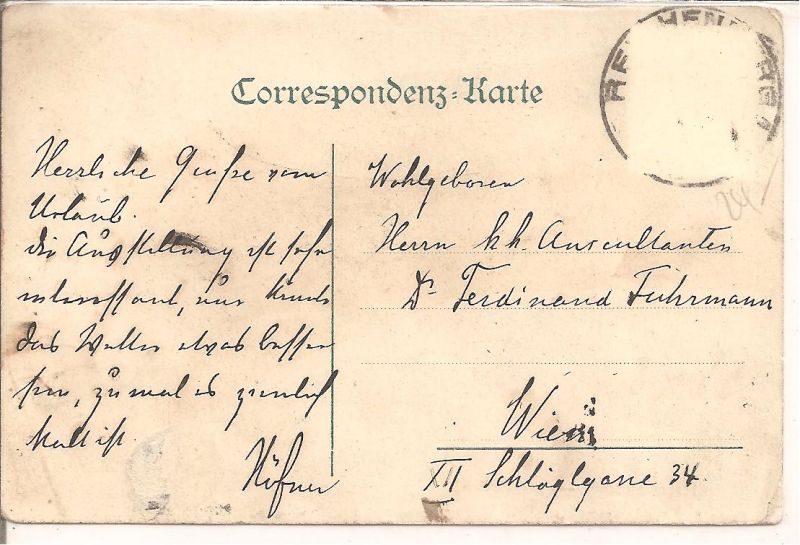 Correspondenz-Karte
Herrliche Grüße vom
Urlaub.
Die Ausstellung ist sehr
interessant, nur könnte
das Wetter etwas besser
sein, zumal es ziemlich
kalt ist.
Höfner
Wohlgeboren
Herrn kk. Auscultanten
Dr. Ferdinand Fuhrmann
Wien
XII Schloglgasse 34.